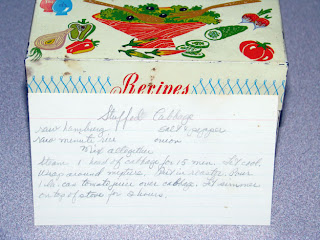 Recipes
Stuffed Cabbage
raw hamburg salt & pepper
raw minute rice onion
Mix altogether
Steam 1 head of cabbage for 15 min. Let cool.
Wrap around mixture. Put in roaster. Pour
1 lg. can tomato juice over cabbage. Let simmer
on top of stove for 2 hours.